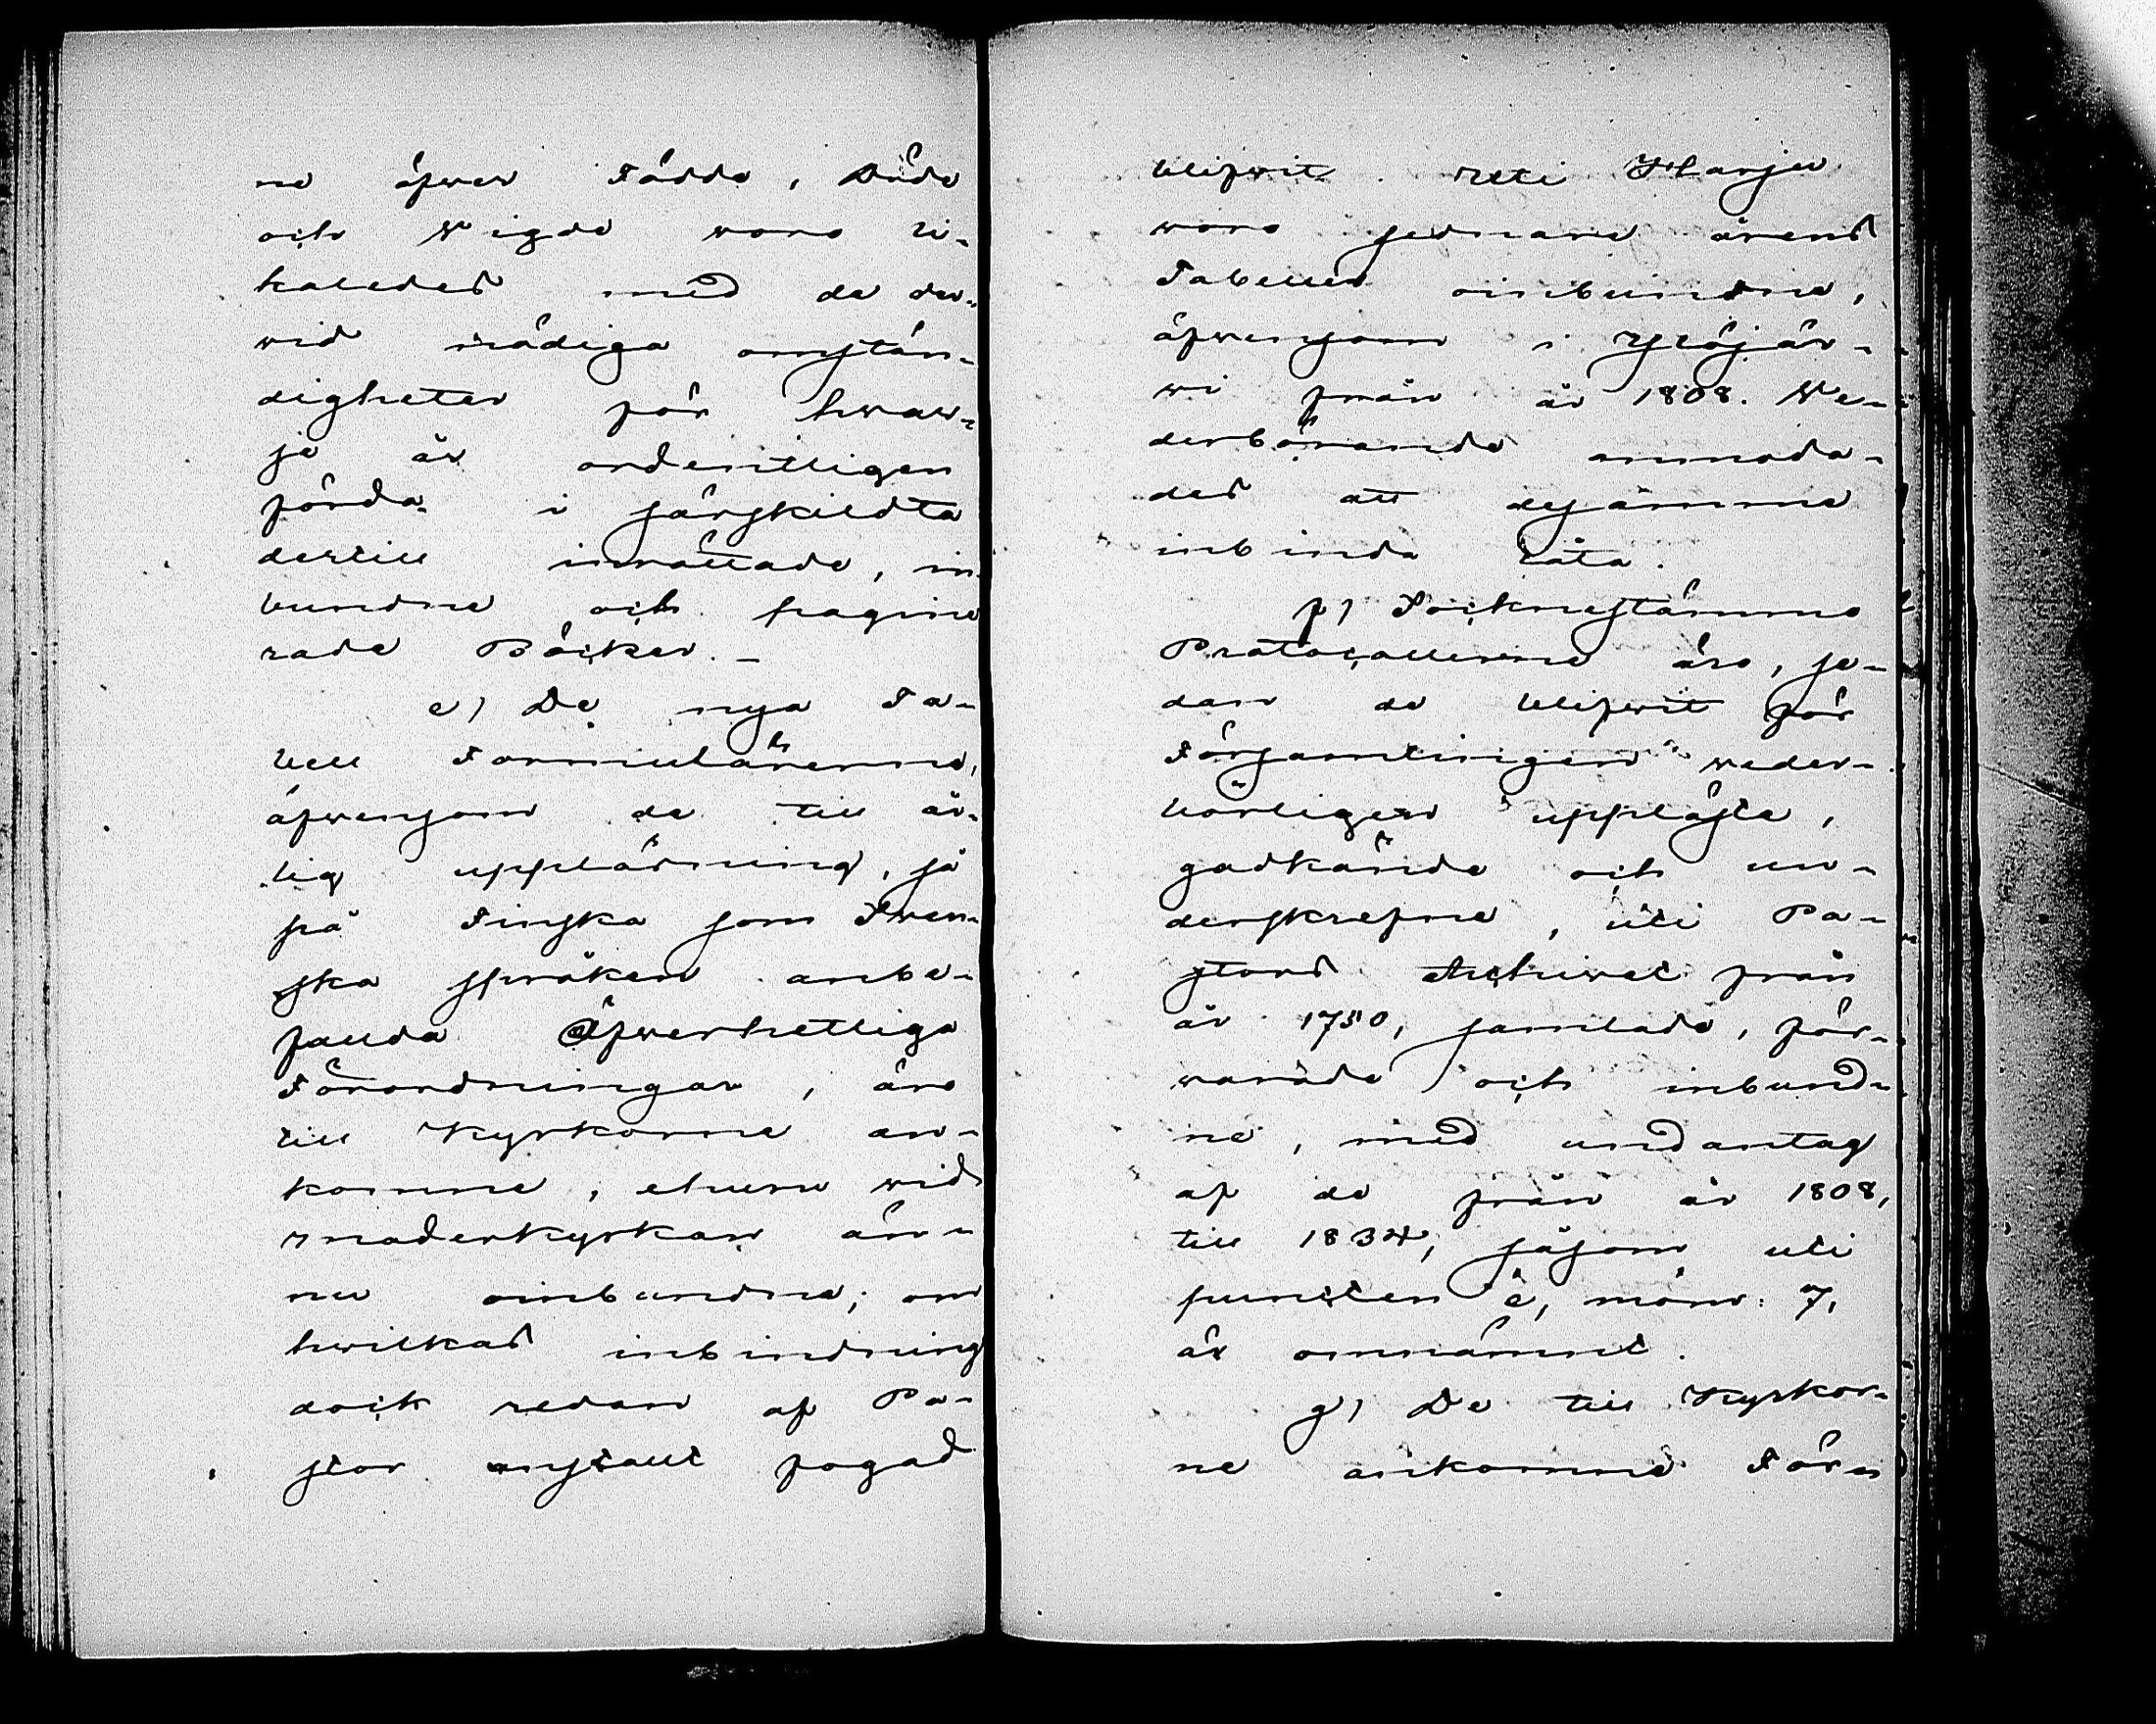 ne öfwer Födde, Döde
och Wigde woro li-
kaledes med de der-
wid nödiga omstän-
digheter för hwar-
je år ordentligen
förda i särskildta
dertill inrättade, in-
bundne och pagine
rade Böcker. -
e) De nya Ta-
bell Formulärerne,
äfwensom de till år-
lig uppläsning, så
på Finska som Swen-
ska språken anbe-
fallda Öfwerhetliga
Förordningar, äro
till Kyrkorne an-
komne, ehuru wid
moderkyrkan än-
nu oinbundne; om
hwilkas inbindning
dock redan af Pa-
stor anstalt fogad
blifwit. Uti Harju
woro sednare årens
Tabeller oinbundne,
äfwensom i Ylöjär-
wi från år 1808. We-
derbörande anmoda-
des att desamme
inbinda låta.
f) Socknestämmo
Protocollerne äro, se-
dan de blifwit för
Församlingen weder-
börligen uppläste,
godkände och un-
derskrefne, uti Pa-
stors Archivet från
år 1750, samlade, för-
warade och inbund-
ne, med undantag
af de från år 1808,
till 1834, såsom uti
puncten e, mom: 7,
är omnämnt.
g) De till Kyrkor-
ne ankomne För-